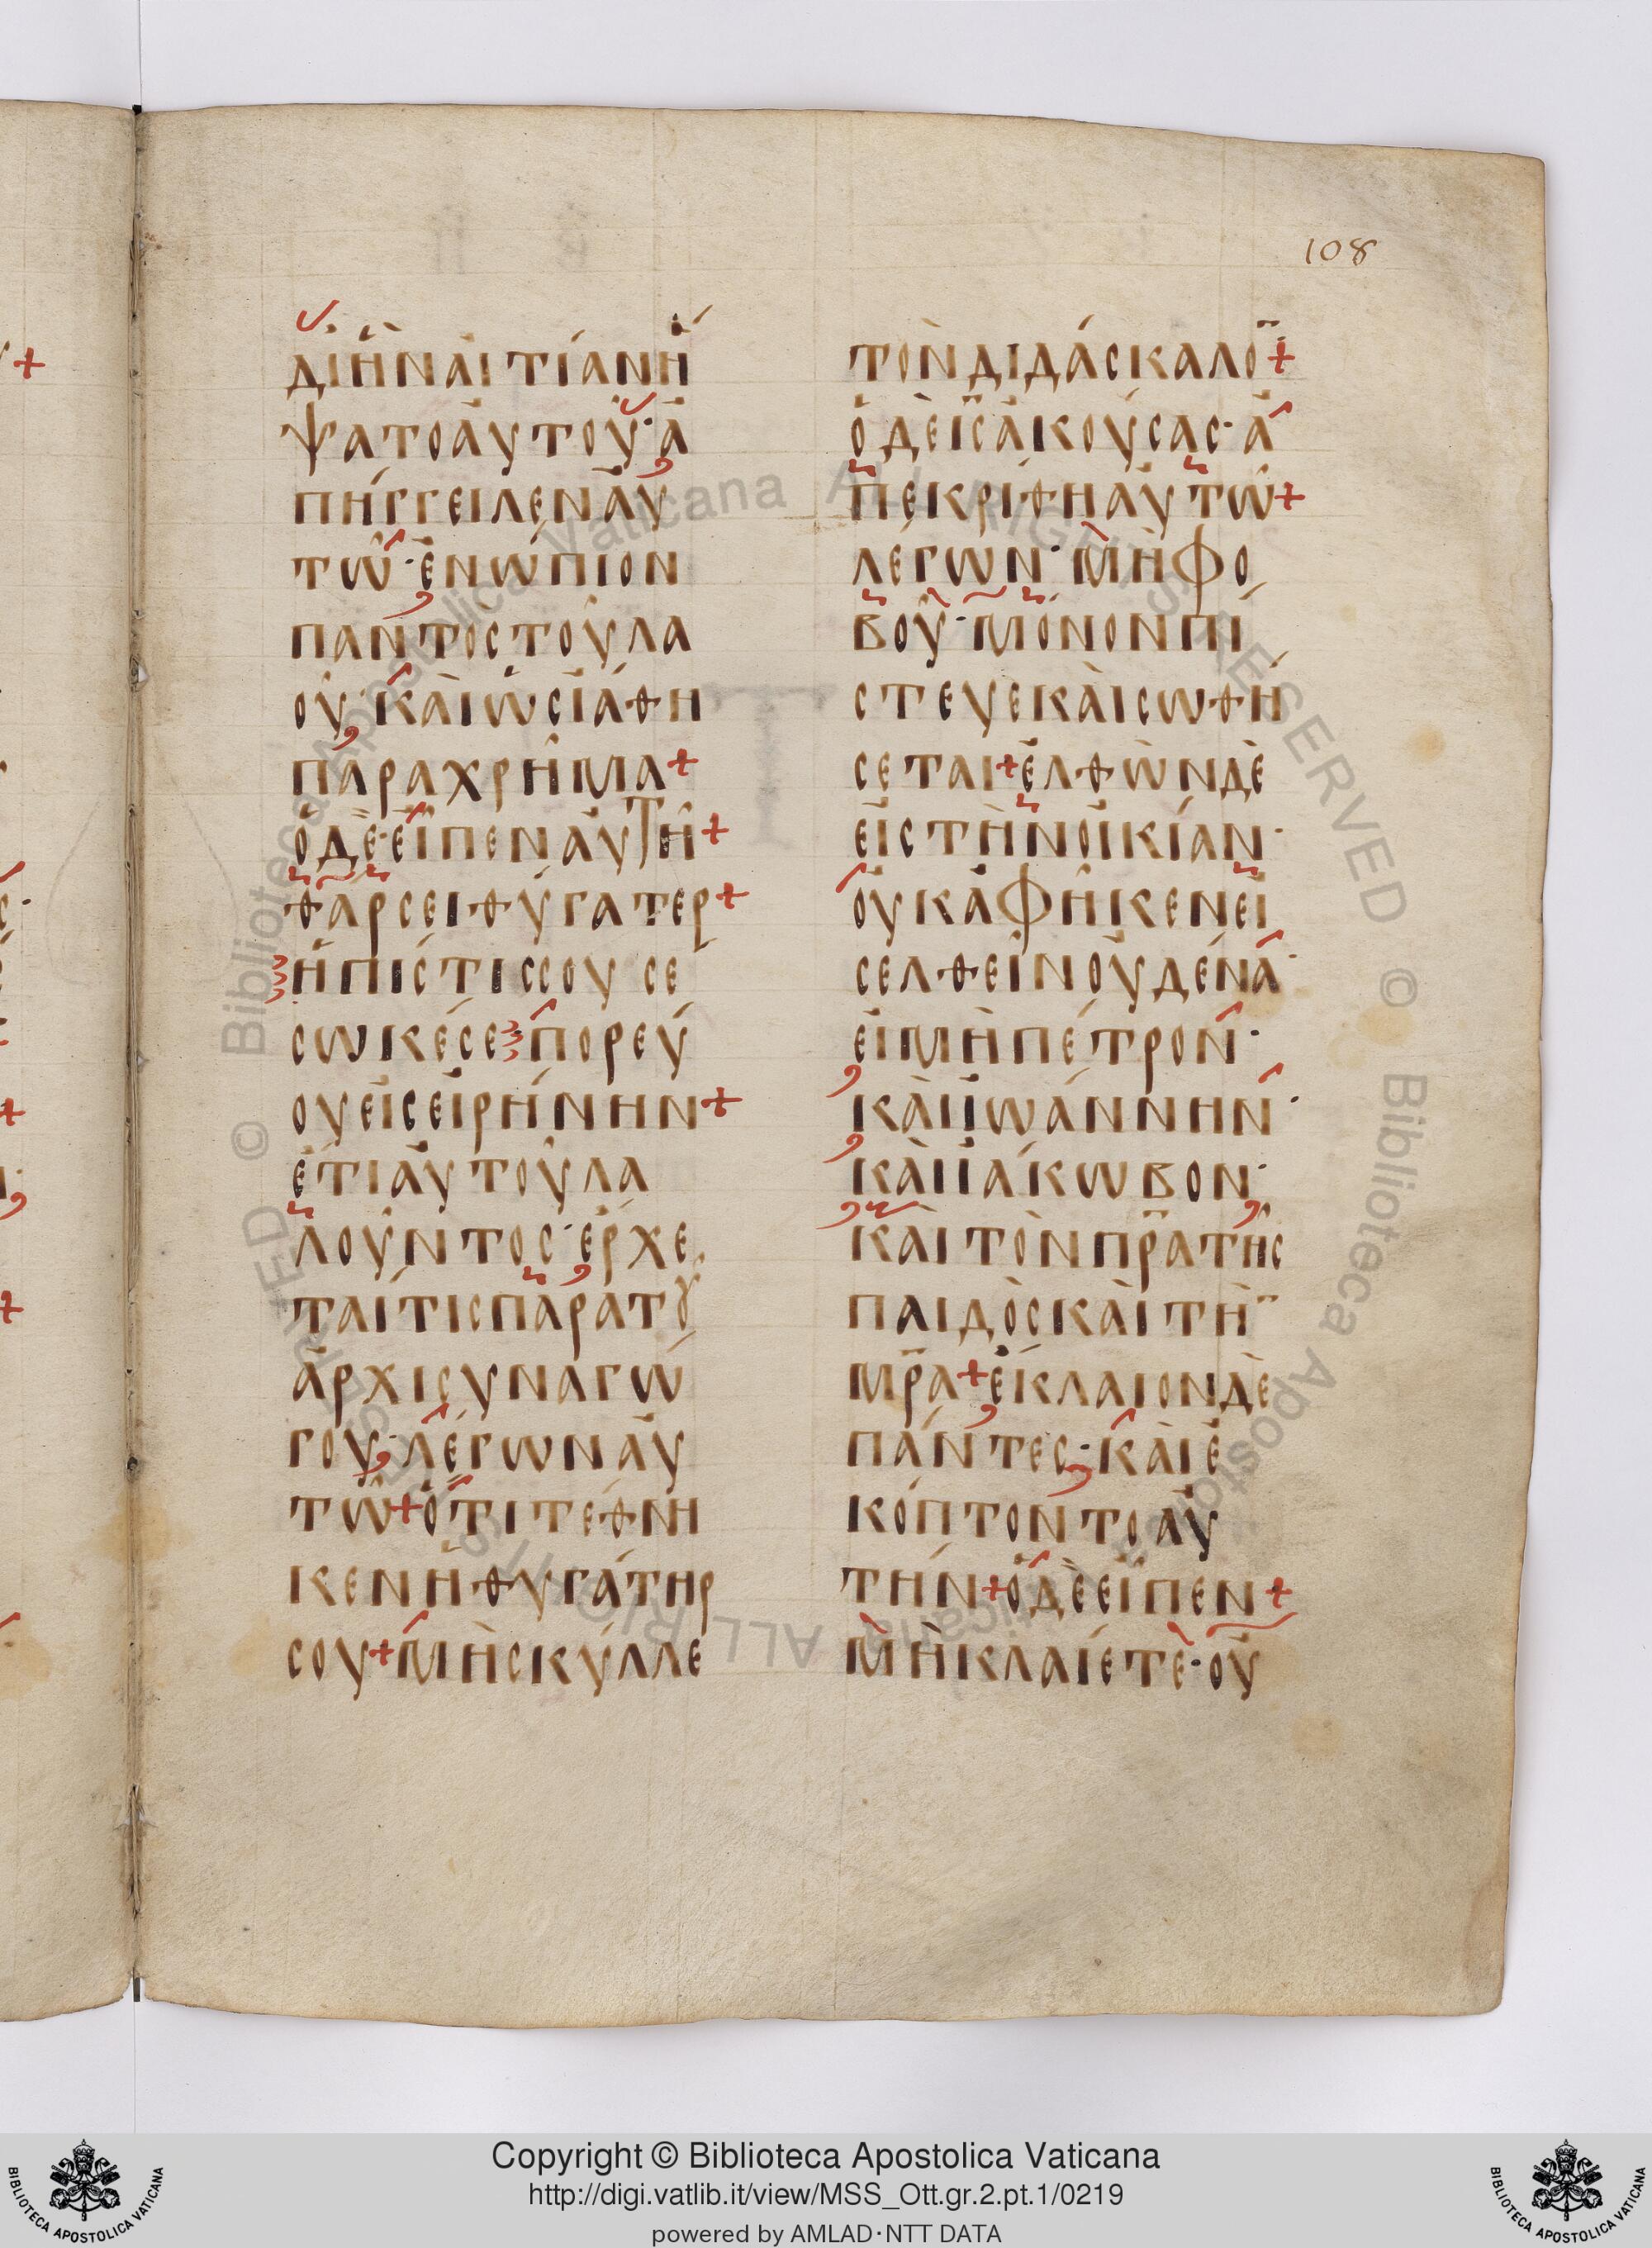 108
ΔΙΗΝΑΙΤΙΑΝΗ
ΨΑΤΟΑΥΤΟΥ·Α
ΠΗΓΓΕΙΛΕΝΑΥ
ΤΩ·ΕΝΩΠΙΟΝ
ΠΑΝΤΟΣΤΟΥΛΑ
ΟΥ·ΚΑΙΩΣΙΑΘΗ
ΠΑΡΑΧΡΗΜΑ+
ΟΔΕ·ΕΙΠΕΝΑΥΤΗ+
ΘΑΡΣΕΙΘΥΓΑΤΕΡ+
ΗΠΙΣΤΙΣΣΟΥΣΕ
ΣΩΚΕΣΕ ΠΟΡΕΥ
ΟΥΕΙΣΕΙΡΗΝΗΝ+
ΕΤΙΑΥΤΟΥΛΑ
ΛΟΥΝΤΟΣ·ΕΡΧΕ
ΤΑΙΤΙΣΠΑΡΑΤΟΥ
ΑΡΧΙΣΥΝΑΓΩ
ΓΟΥ·ΛΕΓΩΝΑΥ
ΤΩ+ΟΤΙΤΕΘΝΗ
ΚΕΝΗΘΥΓΑΤΗΡ
ΣΟΥ+ΜΗΣΚΥΛΛΕ
ΤΟΝΔΙΔΑΣΚΑΛΟ̅+
ΟΔΕΙ̅Σ̅ΑΚΟΥΣΑΣ·Α
ΠΕΚΡΙΘΗΑΥΤΩ+
ΛΕΓΩΝ·ΜΗΦΟ
ΒΟΥ·ΜΟΝΟΝΠΙ
ΣΤΕΥΕΚΑΙΣΩΘΗ
ΣΕΤΑΙ+ΕΛΘΩΝΔΕ
ΕΙΣΤΗΝΟΙΚΙΑΝ·
ΟΥΚΑΦΗΚΕΝΕΙ
ΣΕΛΘΕΙΝΟΥΔΕΝΑ·
ΕΙΜΗΠΕΤΡΟΝ·
ΚΑΙΪΩΑΝΝΗΝ·
ΚΑΙΪΑΚΩΒΟΝ·
ΚΑΙΤΟΝΠ̅Ρ̅Α̅ΤΗΣ
ΠΑΙΔΟΣΚΑΙΤΗ̅
Μ̅Ρ̅Α̅+ΕΚΛΑΙΟΝΔΕ
ΠΑΝΤΕΣ·ΚΑΙΕ
ΚΟΠΤΟΝΤΟΑΥ
ΤΗΝ+ΟΔΕΕΙΠΕΝ+
ΜΗΚΛΑΙΕΤΕ·ΟΥ
© Biblioteca Apostolica Vaticana ALL RIGHTS RESERVED
© Biblioteca Apostolica Vaticana ALL RIGHTS RESERVED
Copyright © Biblioteca Apostolica Vaticana
http://digi.vatlib.it/view/MSS_Ott.gr.2.pt.1/0219
powered by AMLAD·NTT DATA
BIBLIOTECA APOSTOLICA VATICANA
BIBLIOTECA APOSTOLICA VATICANA